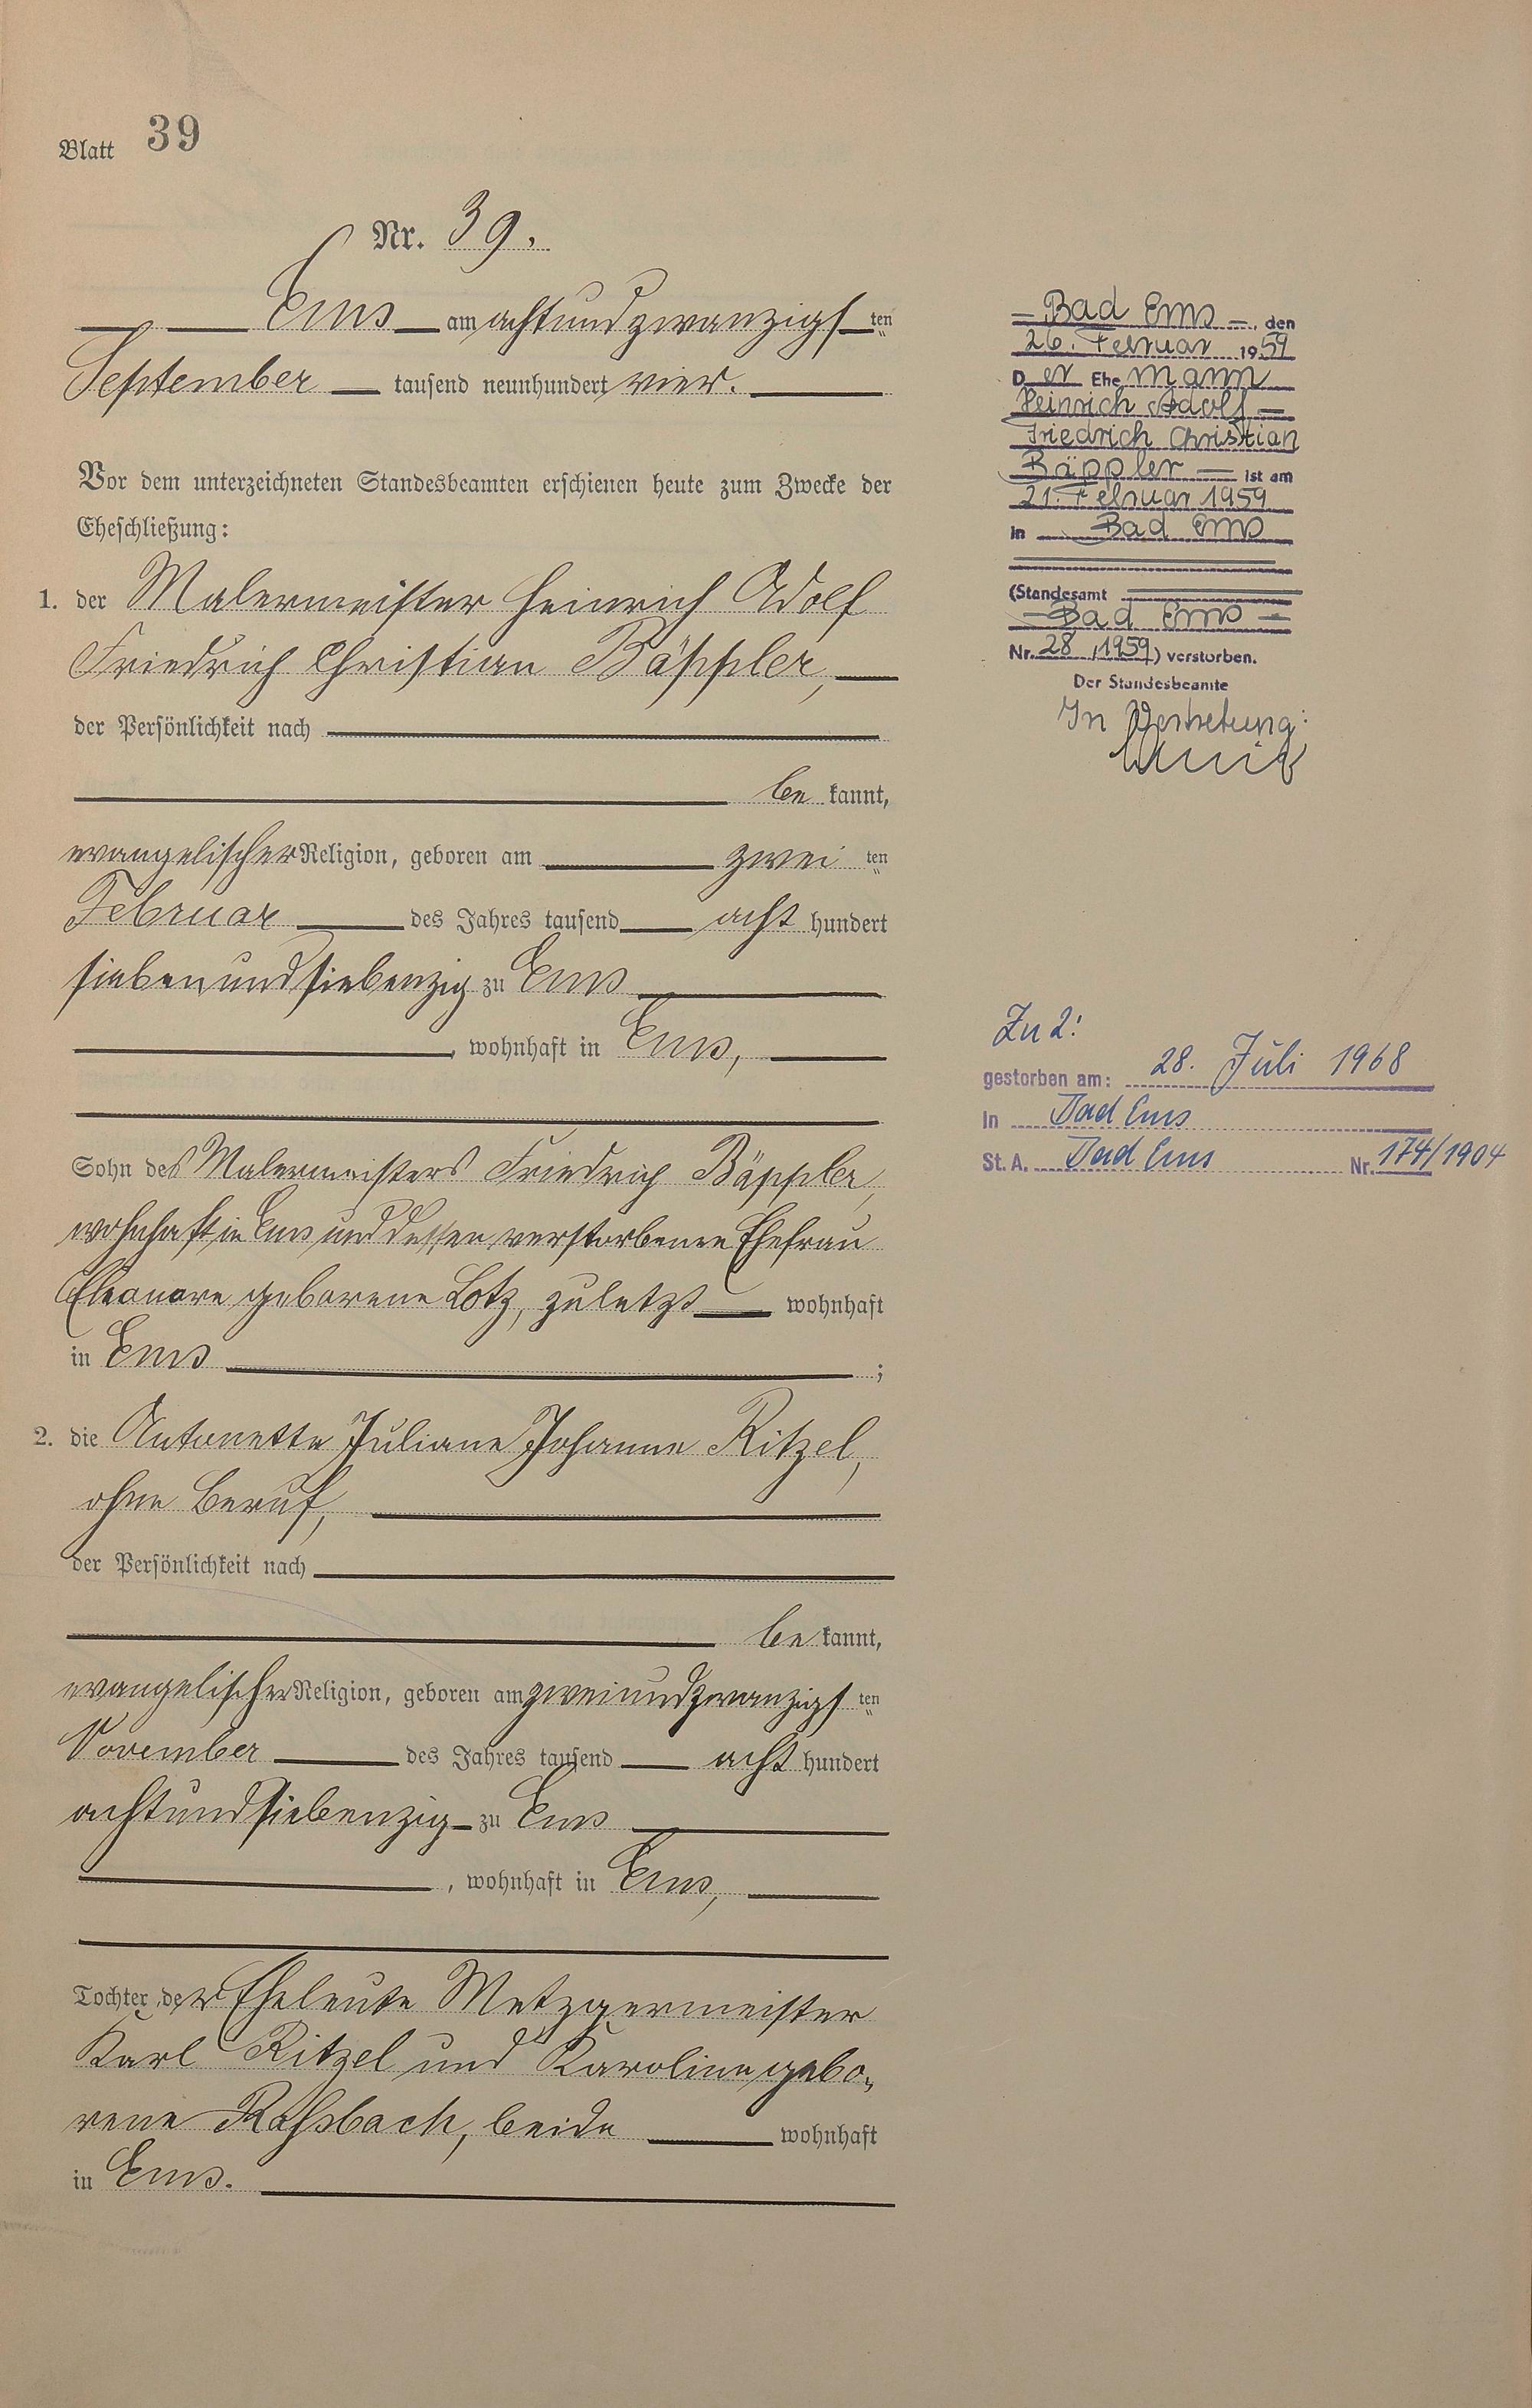 Blatt 39
Nr. 39.
Ems am achtundzwanzigsten
September tausend neunhundert vier.
Vor dem unterzeichneten Standesbeamten erschienen heute zum Zwecke der
Eheschließung:
1. der Malermeister Heinrich Adolf
Friedrich Christian Bäppler,
der Persönlichkeit nach
be kannt,
evangelischer Religion, geboren am zwei ten
Februar des Jahres tausend acht hundert
siebenundsiebenzig zu Ems
, wohnhaft in Ems,
Sohn des Malermeisters Friedrich Bäppler,
wohnhaft in Ems und dessen verstorbenen Ehefrau
Eleonore geborene Lotz, zuletzt wohnhaft
in Ems ;
2. die Antonette Juliane Johanne Ritzel,
ohne Beruf,
der Persönlichkeit nach
be kannt,
evangelischer Religion, geboren am zweiundzwanzigsten
November des Jahres tausend acht hundert
achtundsiebenzig zu Ems
, wohnhaft in Ems,
Tochter der Eheleute Metzgermeister
Karl Ritzel und Karoline gebo-
rene Roßbach, beide wohnhaft
in Ems.
Bad Ems, den
26. Februar 1959
Der Ehemann
Heinrich Adolf
Friedrich Christian
Bäppler ist am
21. Februar 1959
in Bad Ems
(Standesamt
Bad Ems
Nr. 28/1959) verstorben.
Der Standesbeamte
In Vertretung:
Zu 2:
gestorben am: 28. Juli 1968
In Bad Ems
St. A. Bad Ems Nr. 174/1904